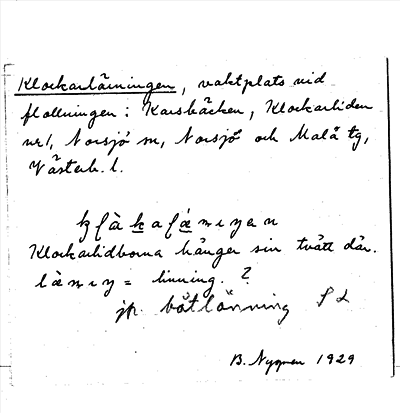 Klockarläningen, vaktplats vid
flottningen i Karsbäcken, Klockarliden
nr 1, Norsjö sn, Norsjö och Malå tg,
Västerb. l.
Klockarlidborna hänger sin tvätt där.
= linning. ?
jfr båtlänning
B. Nygren 1929